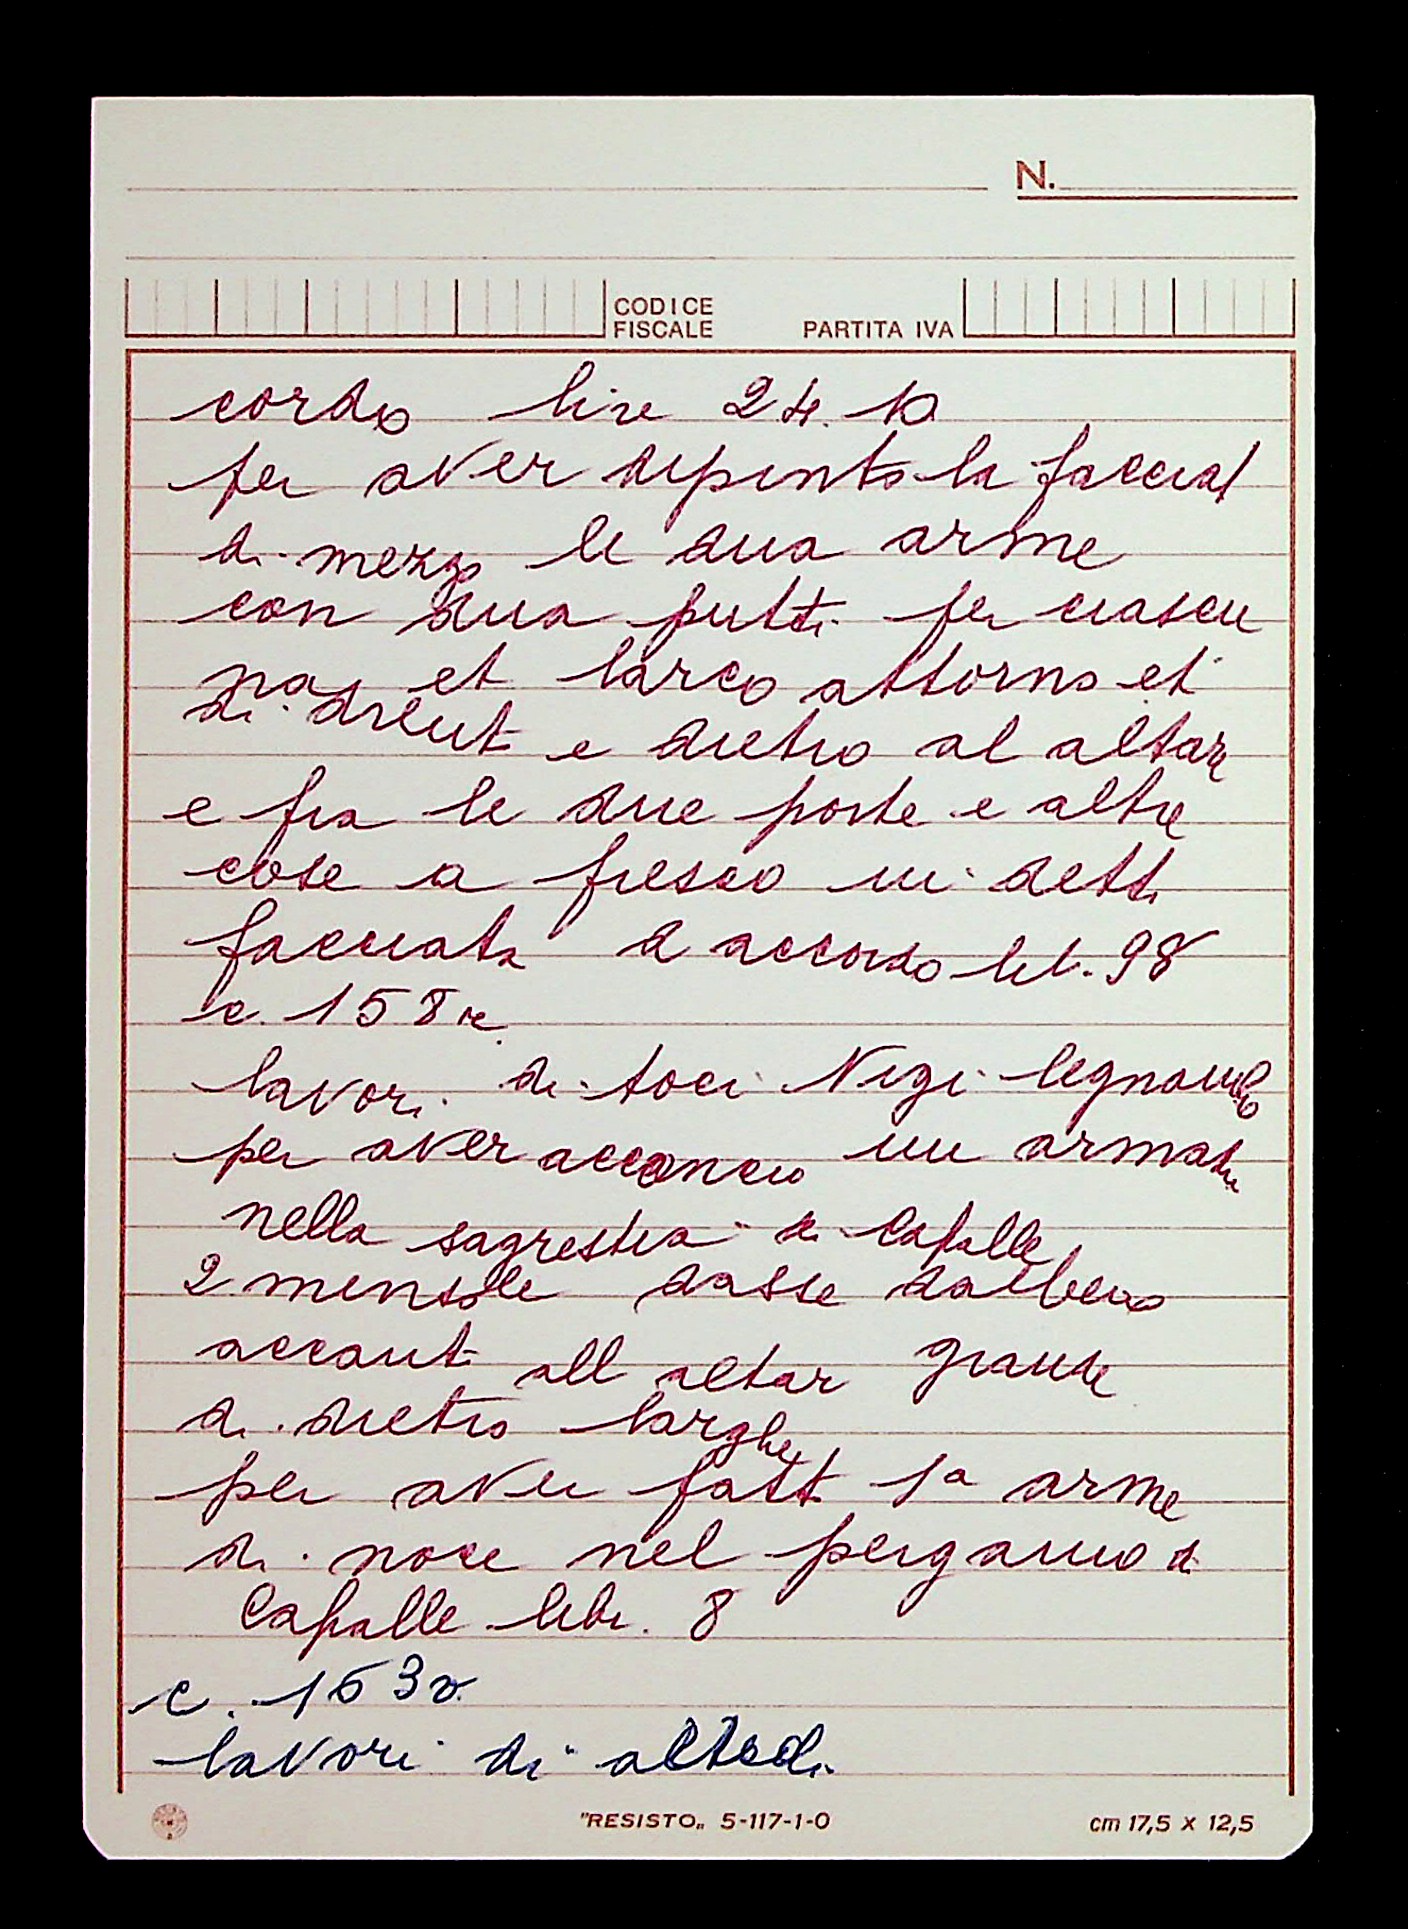 N.
CODICE
FISCALE PARTITA IVA
cordo lire 24.10
per aver dipinto la facciat
di mezzo le dua arme
con dua putti per ciascu
na et larco attorno et
di drent e dietro al altare
e fra le due porte e altre
cose a fresco in detta
facciata d accordo lib. 98
c. 158 r.
lavori di Nigi legnaiuolo
per aver acconcio un armadi
nella sagrestia di Capalle
2 mensole dasse dalbero
accant all altar grande
di dietro larghe
per aver fatt 1a arme
di noce nel pergamo di
Capalle libr. 8
c. 163 v.
lavori di
"RESISTO„ 5-117-1-0 cm 17,5 x 12,5